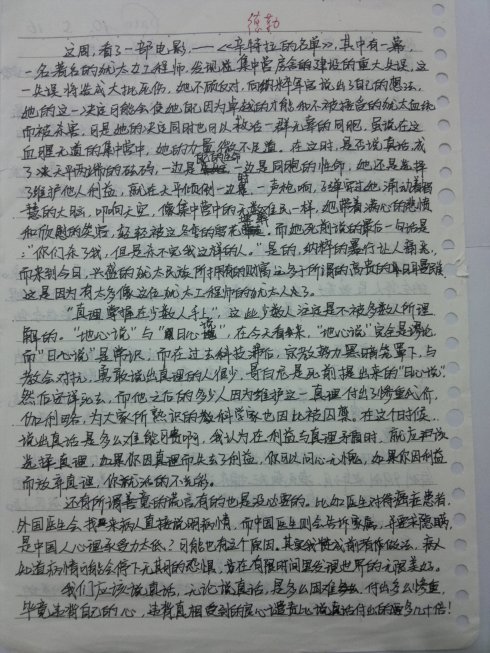 德勤
这周,看了一部电影——《辛特拉的名单》,其中有一幕,
一名著名的犹太女工程师,发现这集中营房舍的建设的重大失误,这
一失误将造成大批死伤,她不顾反对,向纳粹军官说出了自己的想法,
她的这一决定可能会使她 因为卓越的才能和不被接受的犹太血统
而被杀害,可是她的决定同时也可以救活一群无辜的同胞。虽说在这
血腥无道的集中营中,她的力量微不足道。在这时,是否说真话成
了决定天平两端的砝码,一边是 一边是同胞的性命,她还是选择
了维护他人利益,就在天平倾倒一边 ,一声枪响,子弹穿过她满动着智
慧的大脑,叩响天空,像集中营中的无数住民一样,她带着满心的悲愤
和欣慰的笑容,轻轻被这 而她死前说的最后一句话是
:“你们杀了我,但是杀不完我这样的人。”是的,纳粹的暴行让人翻
而来到今日,兴盛的犹太民族所拥有的财富
这是因为有太多像这位犹太工程师的犹太人
“真理掌握在少数人手上”,这些少数人往往是不被多数人所理
解的。“地心说”与“日心说”,在今天看来,“地心说”完全是谬论
而“日心说”是常识,而在过去科技滞后,宗教势力黑暗笼罩下,与
教会对抗,勇敢说出真理的人很少,哥白尼是死前提出来的“日心说”,
然后安详死去,而他之后的多少人因为维护这一真理付出了惨重代价,
伽利略,为大家所熟识的数科学家也因此被囚禁。在这个时候,
说出真话是多么难能可贵啊,我认为在利益与真理矛盾时,就应该
选择真理,如果你因真理而失去了利益,你可以问心无愧,如果你因利益
而放弃真理,你就活的不光彩。
还有所谓善意的谎言有的也是没必要的。比如医生对待癌症患者,
外国医生会找来病人直接说明病情,而中国医生则会告诉家属,并要求隐瞒,
是中国人心理承受力太低?可能也有这个原因。其实我赞成前者做法,病人
知道病情可能会停下无期的恐惧,肯在有限时间里发现世界的无限美好。
我们应该说真话,无论说真话,是多么困难 ,付出多么惨重,
毕竟违背自己的心,违背真相受到的良心谴责比说真话付出的要多几十倍!